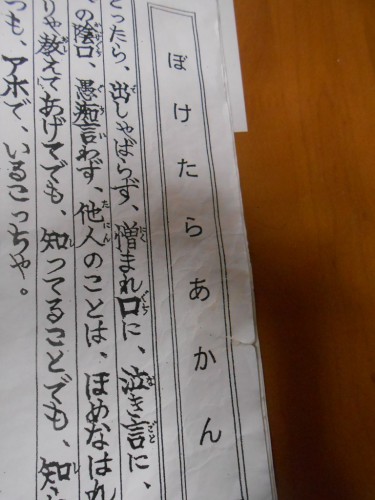 ぼけたらあかん
とったら、出しゃばらず、憎まれ口に、泣き言に、
の陰口、愚痴言わず、他人のことは、ほめなはれ
りゃ教えてあげてでも、知ってることでも、知
つも、アホで、いるこっちゃ。